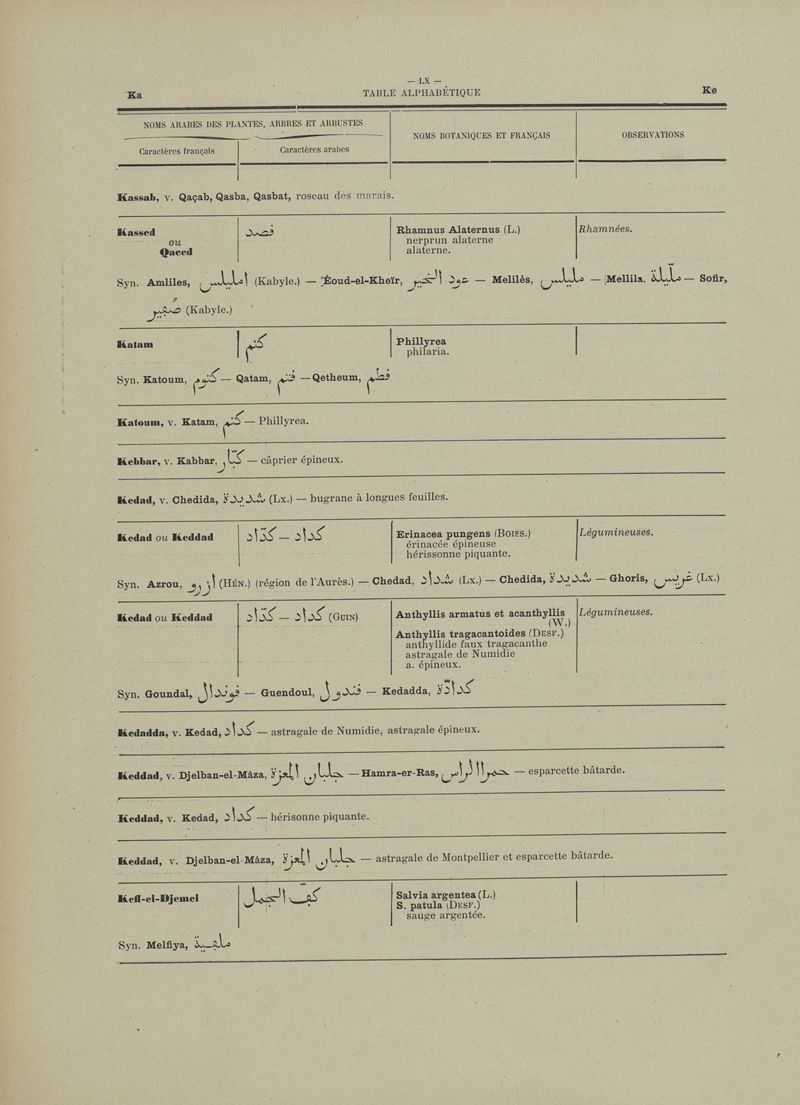 — LX —
Ka TABLE ALPHABÉTIQUE Ke
NOMS ARABES DES PLANTES, ARBRES ET ARBUSTES
NOMS BOTANIQUES ET FRANÇAIS
OBSERVATIONS
Caractères français
Caractères arabes
Kassab, v. Qaçab, Qasba, Qasbat, roseau des marais.
Kassed
ou
Qaced
Rhamnus Alaternus (L.)
nerprun alaterne
alaterne.
Rhamnées.
Syn. Amliles, (Kabyle.) — Éoud-el-Kheïr, عود الخير — Melilès, مليلس — Mellila, مليلة — Sofir,
صفير (Kabyle.)
Katam
كتم
Phillyrea
philaria.
Syn. Katoum, كتوم — Qatam, قتم — Qetheum, قطم
Katoum, v. Katam, كتم — Phillyrea.
Kebbar, v. Kabbar, كبّار — câprier épineux.
Kedad, v. Chedida, شديدة (Lx.) — bugrane à longues feuilles.
Kedad ou Keddad
كداد — كدّاد
Erinacea pungens (Boiss.)
érinacée épineuse
hérissonne piquante.
Légumineuses.
Syn. Azrou, ازرو (Hén.) (région de l'Aurès.) — Chedad, شداد (Lx.) — Chedida, شديدة — Ghoris, غريس (Lx.)
Kedad ou Keddad
كداد — كدّاد (Guin)
Anthyllis armatus et acanthyllis
(W.)
Anthyllis tragacantoides (Desf.)
anthyllide faux tragacanthe
astragale de Numidie
a. épineux.
Légumineuses.
Syn. Goundal, — Guendoul, فندول — Kedadda, كدادّة
Kedadda, v. Kedad, كداد — astragale de Numidie, astragale épineux.
Keddad, v. Djelban-el-Mâza, جلبان المعزة — Hamra-er-Ras, حمرا الراس — esparcette bâtarde.
Keddad, v. Kedad, كداد — hérisonne piquante.
Keddad, v. Djelban-el-Mâza, جلبان المعزة — astragale de Montpellier et esparcette bâtarde.
Keff-el-Djemel
كفّ الجمل
Salvia argentea (L.)
S. patula (Desf.)
sauge argentée.
Syn. Melfiya, ملفية